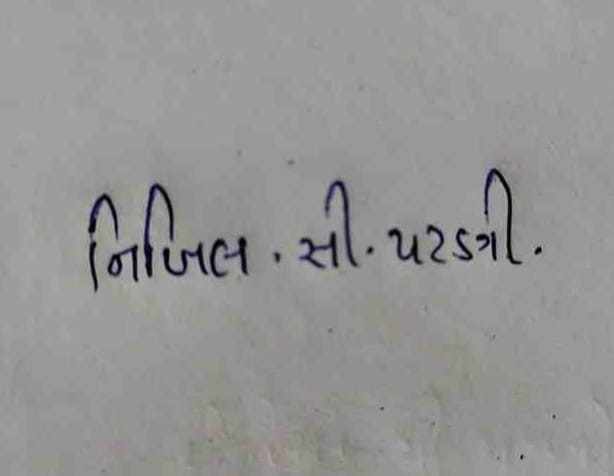 નિખિલ. સી. પરડગી.